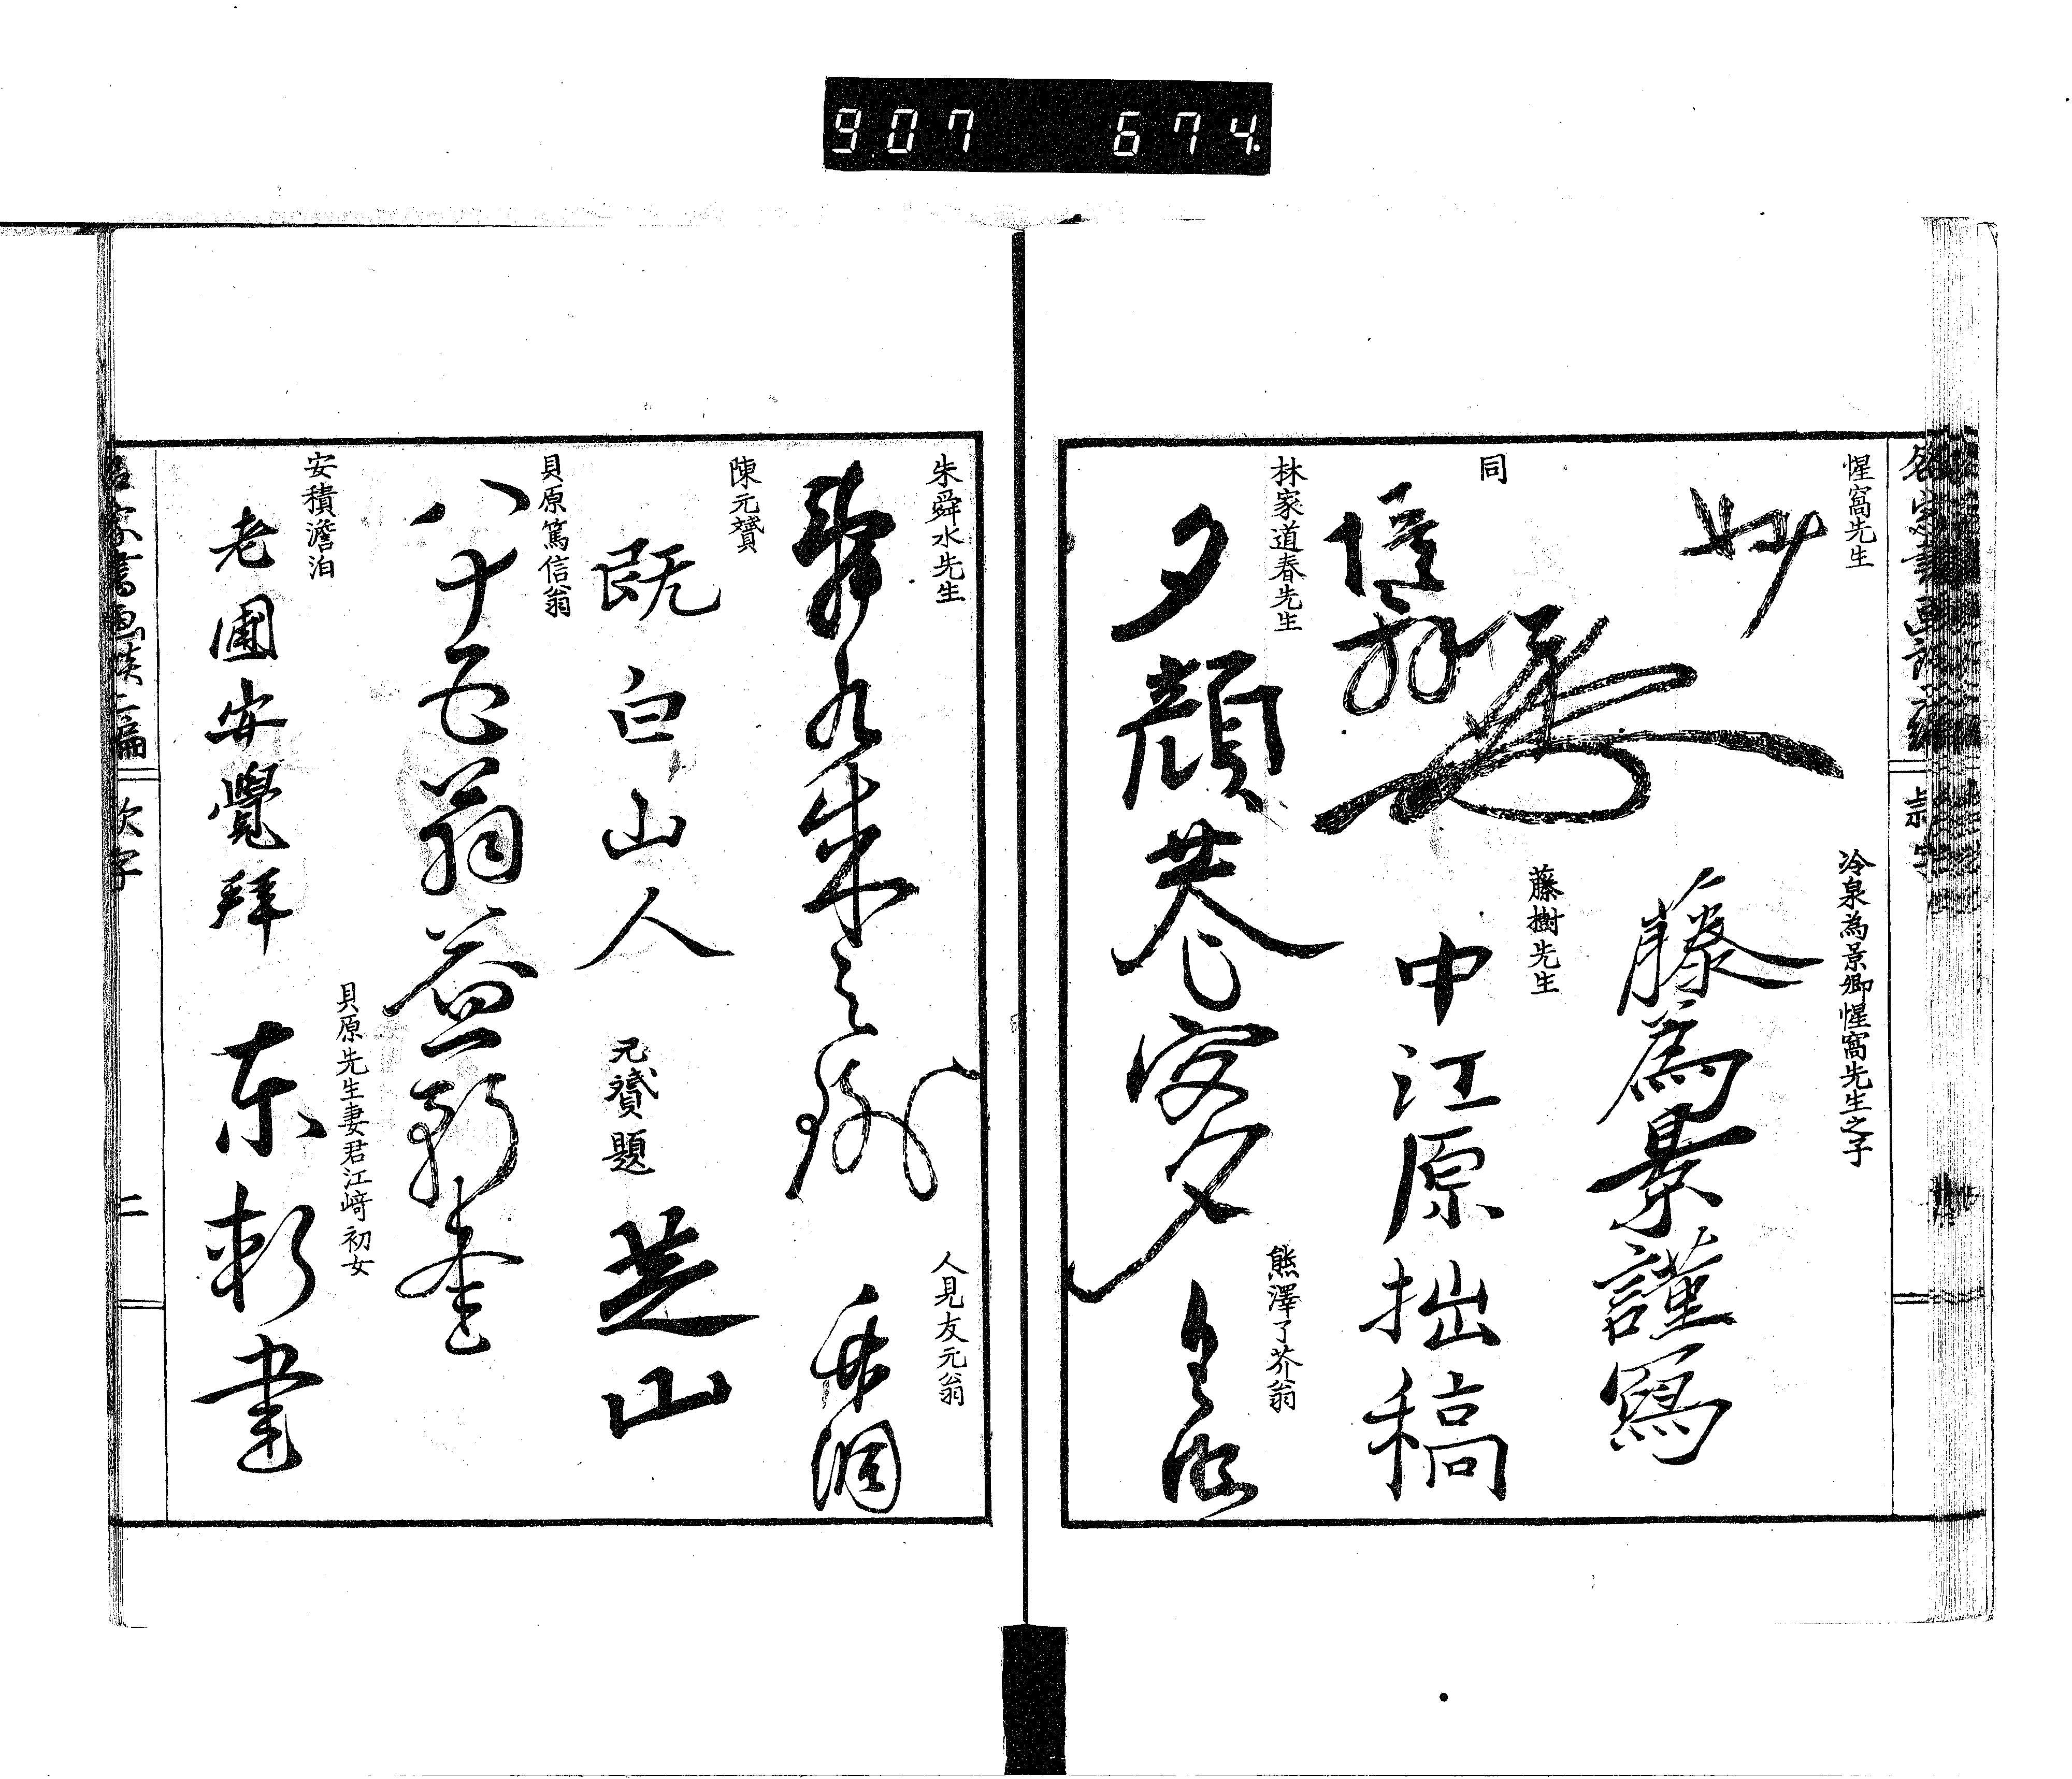 907 674.
惺窩先生
妙
冷泉為景卿惺窩先生之子
藤為景謹寫
同
藤樹先生
中江原拙稿
林家道春先生
夕顔巷
熊澤了芥翁
朱舜水先生
舜水朱之瑜
人見友元翁
竹洞
陳元贇
既白山人
元贇題
芝山
貝原篤信翁
八十五翁益軒書
安積澹泊
老圃安覺拜
貝原先生妻君江﨑初女
東軒書
二